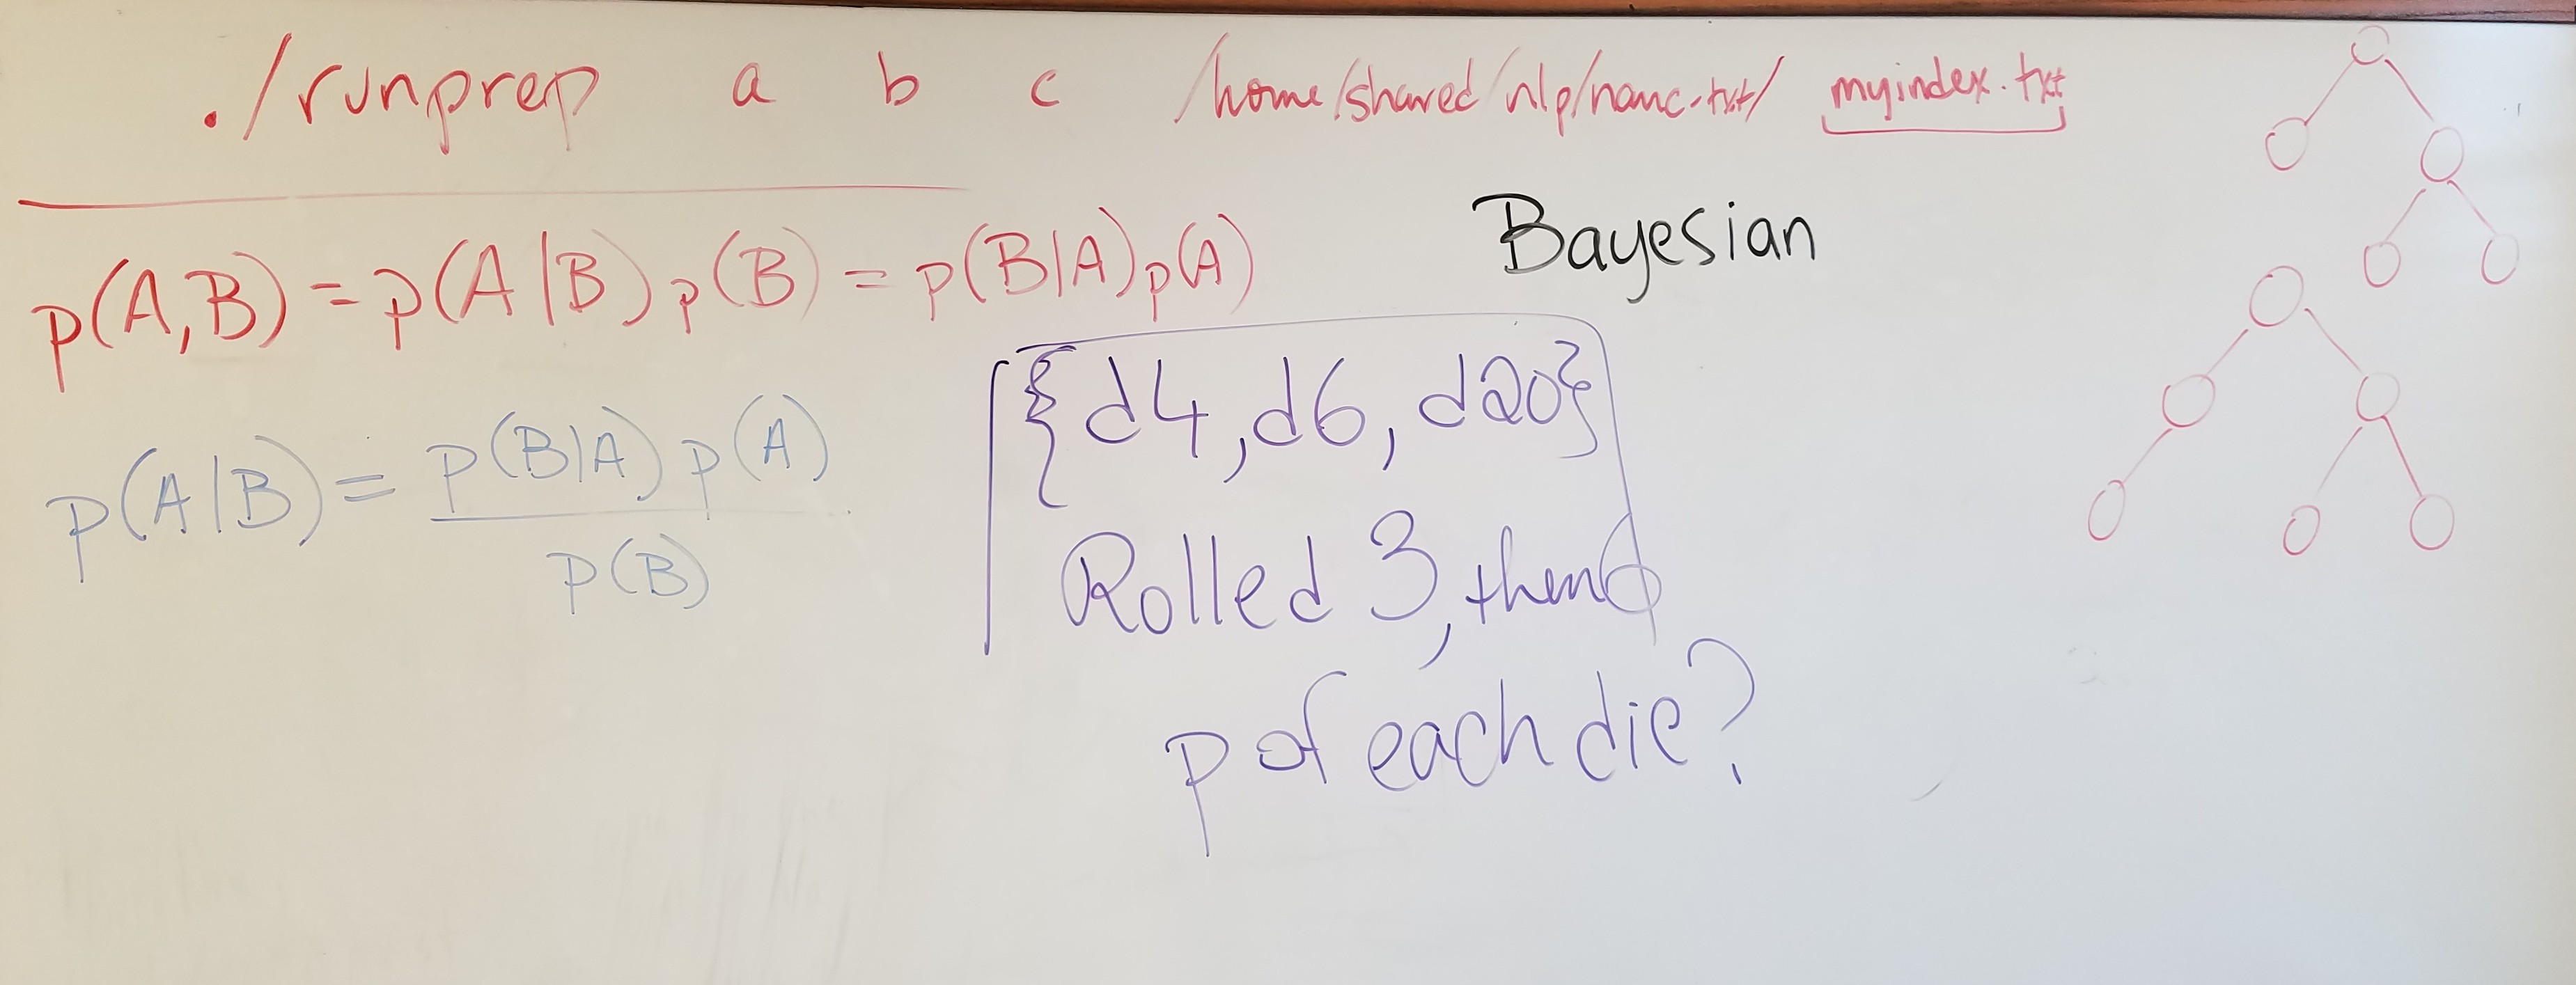 ./runprep a b c /home/shared/nlp/nanc-txt/ myindex.txt
p(A,B) = p(A|B) p(B) = p(B|A) p(A)
Bayesian
p(A|B) = p(B|A) p(A)
p(B)
{d4, d6, d20}
Rolled 3, then 6
p of each die?